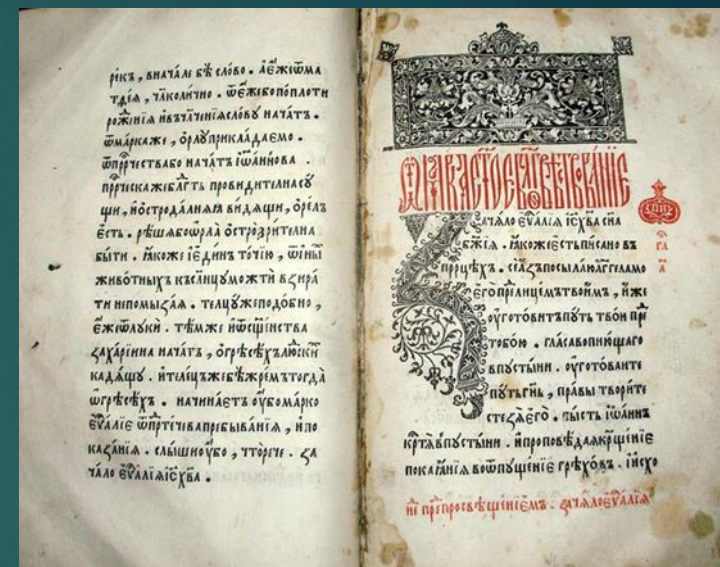 рéкъ, внача́ле бѣ̀ сло́во. а҆є҆́жеѿма
тѳе́я, чл҃коли́чно. ѿє҆́жебопопло́ти
роже́нїѧ и҆въчл҃че́нїѧсло́вꙋ нача́тъ.
ѿма́ркаже, ѻ҆рлꙋ̀прикла́даемо.
ѿпррⷪ҇чествабо нача́тъ і҆ѡа́ннова.
прⷪ҇рческаѧжебл҃гть провиди́телнасꙋ́
щи, и҆ѻ҆строда́лнѧѧ ви́дѧщи, ѻ҆ре́лъ
є҆́сть. рѣ́шѧбоѻ҆рла̀ ѻ҆строзри́телна
бы́ти. ꙗ҆́коже і҆є҆ди́нъ то́чїю, ѿи҆ны́
живо́тныхъ къслн҃цꙋмо́жти взира́
ти непомыза́ѧ. телцꙋ́жеподо́бно,
є҆́жеѿлꙋкѝ. тѣ́мже и҆ѿсщ҃е́нства
заха́рїина нача́тъ, ѻ҆грѣсѣ́хълю́скиⷯ
кадѧ́щꙋ. и҆теле́цъжебѣ̀жре́мътогда̀
ѡ҆грѣсѣ́хъ. начина́етъ ᲂу҆̀бома́рко
є҆ѵⷢ҇а́лїе ѿпрⷣте́чевапребыва́нїѧ, и҆по
каза́нїѧ. слы́шиᲂу҆̀бо, что̀рече. за
ча́ло є҆ѵⷢ҇а́лїѧі҆с҃ х҃ва.
зача́ло є҆ѵⷢ҇а́лїѧ і҆с҃ х҃ва сн҃а
бж҃їѧ. ꙗ҆́кожеє҆стьпи́сано въ
прⷪ҇рцѣхъ. сѐа҆́зъпосыла́юа҆́гг҃еламо
є҆го̀предлице́мътвои́мъ, и҆́же
ᲂу҆гото́витъпꙋ́ть тво́и пре
тобо́ю. гла́съвопїю́щаго
впꙋсты́ни. ᲂу҆гото́ваите
пꙋ́тьгн҃ь, пра́вы твори́те
стезѧ̀є҆гѡ̀. бы́сть і҆ѡа́ннъ
крⷭ҇тѧ́впꙋсты́ни. и҆проповѣ́даѧкрⷳ҇ще́нїе
покаѧ́нїѧ вѡѿпꙋще́нїе грѣхо́въ. и҆и҆схо